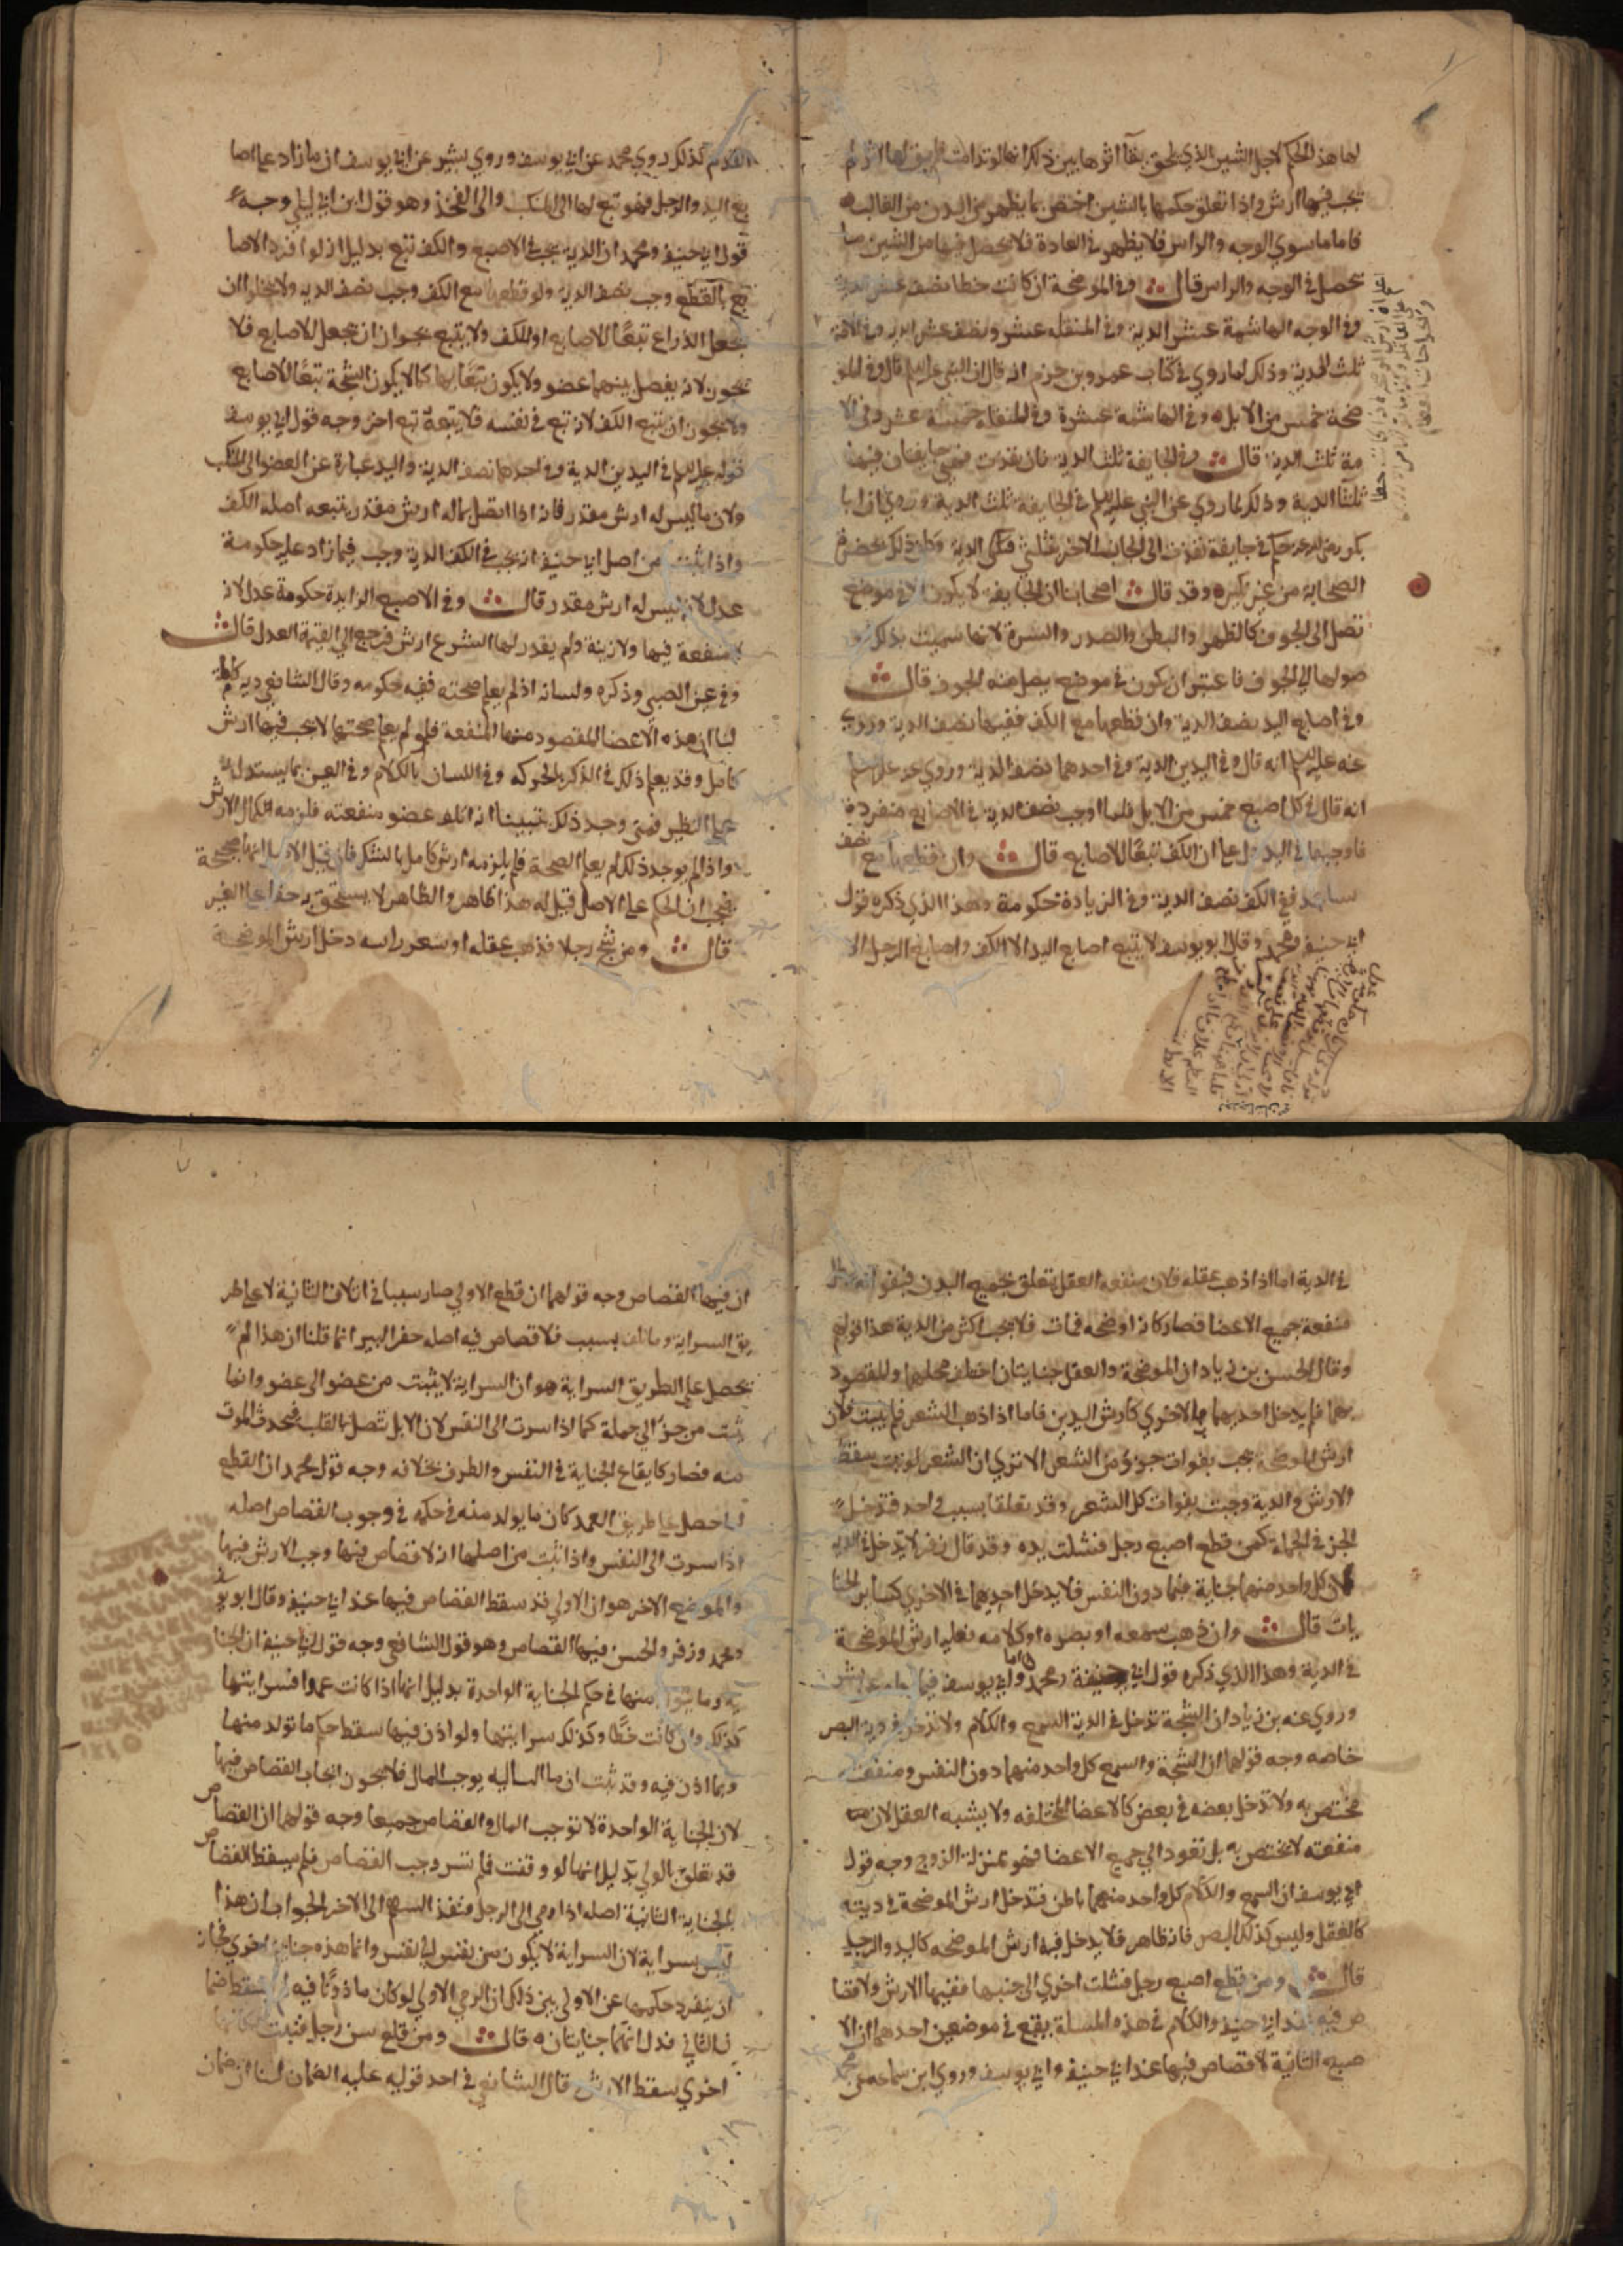 لها هذا الحكم لاجل الشين الذي يلحق ببقآ اثرها يبين ذلك انها لو تدامت لم يبق لها اثر لم
تجب فيها ارش واذا تعلق حكمها بالشين اختص بما يظهر من البدن من الغالب
فاما ما سوي الوجه والراس فلا يظهر في العادة فلا يحصل فيها من الشين ما
يحصل في الوجه والراس قال وفي الموضحة ان كانت خطا نصف عشر الدية
وفي الوجه الهاشمة عشر الدية وفي المنقله عشر ونصف عشر الدية وفي الامة
ثلث الدية وذلك لما روي في كتاب عمرو بن حزم انه قال ان النبي عليه السلم قال وفي الموـ
ضحة خمس من الابل وفي الهاشمة عشرة وفي المنقله خمسة عشر وفي الا
مة ثلث الدية قال وفي الجايفة ثلث الدية فان نفذت فهي جايفتان فيهما
ثلثآ الدية وذلك لما روي عن النبي عليه السلم في الجايفة ثلث الدية وروي ان ابا
بكر رضي الله عنه حكم في جايفة نفذت الى الجانب الاخر بثلثي الدية وكان ذلك بحضرة
الصحابة من غير نكير وقد قال اصحابنا ان الجايفة لا يكون الا في موضع
تصل الى الجوف كالظهر والبطن والصدر والسرة لانها سميت بذلك لو
صولها الي الجوف فاعتبر ان يكون في موضع يصل منه الجوف قال
وفي اصابع اليد نصف الدية وان قطعها مع الكف ففيها نصف الدية وروي
عنه عليه السلم انه قال وفي اليدين الدية وفي احدهما نصف الدية وروي عنه عليه السلم
انه قال في كل اصبع خمس من الابل فلما اوجب نصف الدية في الاصابع منفردة
فاوجبها في اليد دل علي ان الكف تبعًا للاصابع قال وان قطعها مع نصف
ساعد ففي الكف نصف الدية وفي الزيادة حكومة وهذا الذي ذكره قول
ابي حنيفه ومحمد وقال ابو يوسف لا يتبع اصابع اليد الا الكف واصابع الرجل الا
القدم كذلك روي محمد عن ابي يوسف وروي بشير عن ابي يوسف ان ما زاد علي اصا
بع اليد والرجل فهو تبع لها الى المنكب والى الفخذ وهو قول ابن ابي ليلي وجه
قول ابي حنيفه ومحمد ان الدية تجب في الاصبع والكف تتبع بدليل انه لو افرد الاصا
بع بالقطع وجب نصف الدية ولو قطعها مع الكف وجب نصف الدية ولا يخلوا ان
يجعل الذراع تبعًا للاصابع او للكف ولا يتبع يجوز ان يجعل للاصابع فلا
يجوز لانه يفصل بينهما عضو ولا يكون تبعًا بها كما لا يكون الشجة تبعًا للاصابع
ولا يجوز ان يتبع الكف لانه تبع في نفسه فلا يتبعه تبع اخر وجه قول ابي يوسف
قوله عليه السلم في اليدين الدية وفي احدهما نصف الدية واليد عبارة عن العضو الى المنكب
ولان ما ليس له ارش مقدر فانه اذا اتصل بماله ارش مقدر يتبعه اصله الكف
واذا ثبت من اصل ابا حنيفه انه تجب في الكف الدية وجب فيما زاد عليه حكومة
عدل لانه ليس له ارش مقدر قال وفي الاصبع الزايدة حكومة عدل لانه
لا منفعة فيها ولا زينة ولم يقدر لها الشرع ارش فرجع الي القيمة العدل قال
وفي عين الصبي وذكره ولسانه اذ لم يعلم صحته ففيه حكومه وقال الشافعي ديه كامله
لنا ان هذه الاعضا المقصود منها المنفعة فلو لم يعلم صحتها لا يجب فيها ارش
كامل وقد يعلم ذلك في الذكر بالحركه وفي اللسان بالكلام وفي العين بما يستدل به
علي النظر فمتي وجد ذلك تبينا انه اتلف عضو منفعته فلزمه كمال الارش
واذا لم يوجد ذلك لم يعلم الصحة فلم يلزمه ارش كامل بالشك فان قيل الاصل انها صحيحة
فيجب ان الحكم علي الاصل قيل له هذا ظاهر والظاهر لا يستحق به حقا علي الغير
قال ومن شج رجلا فذهب عقله او شعر راسه دخل ارش الموضحة
في الدية اما اذا ذهب عقله فلان منفعه العقل تتعلق بجميع البدن فبفواته
منفعة جميع الاعضا فصار كانه اوضحه فمات فلا يجب اكثر من الدية هذا قولهم
وقال الحسن بن زياد ان الموضحة والعقل جنايتان اختلف محلهما والمقصود
بهما فلم يدخل احديهما في الاخري كارش اليدين فاما اذا ذهب الشعر فلم ينبت فلان
ارش الموضحة يجب بفوات جزوٍ من الشعر الا تري ان الشعر لو نبت سقط
الارش والدية وجبت بفوات كل الشعر وقد تعلقا بسبب واحد فتدخل
الجز في الجملة كمن قطع اصبع رجل فشلت يده وقد قال زفر لا يدخل في الدية
لان كل واحد منهما جناية فيما دون النفس فلا يدخل احديهما في الاخري كساير الجنا
يات قال وان ذهب سمعه او بصره او كلامه فعليه ارش الموضحة
في الدية وهذا الذي ذكره قول ابي حنيفة ومحمد واما ابي يوسف فيما
وروي عنه بن زياد ان الشجة تدخل في الدية السمع والكلام ولا تدخل في دية البصر
خاصه وجه قولهما ان الشجة والسمع كل واحد منهما دون النفس ومنفعته
مختص به ولا تدخل بعضه في بعض كالاعضا المختلفه ولا يشبه العقل لان
منفعته لا تختص به بل تعود الي جميع الاعضا فهو بمنزلة الروح وجه قول
ابي يوسف ان السمع والكلام كل واحد منهما باطن فتدخل ارش الموضحة في ديته
كالعقل وليس كذلك البصر فانه ظاهر فلا يدخل فيه ارش الموضحه كاليد والرجل
قال ومن قطع اصبع رجل فشلت اخري الى جنبها ففيهما الارش ولا قصا
ص فيه عند ابي حنيفه والكلام في هذه المسلة يقع في موضعين احدهما ان الا
صبع الثانية لا قصاص فيها عند ابي حنيفه وابي يوسف وروي ابن سماعه عن محمد
ان فيهما القصاص وجه قولهما ان قطع الاولي صار سببا في اتلاف الثانية لا علي طر
يق السراية وما تلف بسبب فلا قصاص فيه اصله حفر البير انما قلنا ان هذا لم
يحصل علي الطريق السراية هو ان السراية لا يثبت من عضو الى عضو وانما
ثبت من جزٍ الي جملة كما اذا سرت الى النفس لان الابل تتصل بالقلب فيحدث الموت
منه فصار كايقاع الجناية في النفس والطرف بخلافه وجه قول محمد ان القطع
لما حصل علي طريق العمد كان ما يولد منه في حكمه في وجوب القصاص اصله
اذا سرت الى النفس واذا ثبت من اصلهما ان لا قصاص فيها وجب الارش فيها
والموضع الاخر هو ان الاولي قد سقط القصاص فيها عند ابي حنيفه وقال ابو يوسف
ومحمد وزفر والحسن فيهما القصاص وهو قول الشافعي وجه قول ابي حنيفه ان الجنا
ية وما يتولد منها في حكم الجناية الواحدة بدليل انها اذا كانت عمدا فسرايتها
كذلك وان كانت خطًا وكذلك سرايتها ولو اذن فيها سقط حكم ما تولد منها
وبما اذن فيه وقد ثبت ان ما الساليه يوجب المال فلا يجوز ايجاب القصاص فيها
لان الجناية الواحدة لا توجب المال والقصاص جميعا وجه قولهما ان القصاص
قد تعلق بالولي بدليل انها لو وقفت فلم تسر وجب القصاص فلم يسقط القصاص
بالجناية الثانية اصله اذا رمي الى الرجل ونفذ السهم الى الاخر الجواب ان هذا
ليس بسراية لان السراية لا يكون من نفس الي نفس وانما هذه جناية اخري فجاز
ان ينفرد حكمها عن الاولي يبين ذلك ان الرمي الاولي لو كان ماذونًا فيه لم يسقط ضما
ن الثاني فدل انهما جنايتان قال ومن قلع سن رجل فنبت مكانها
اخري سقط الارش قال الشافعي في احد قوليه عليه الضمان لنا ان ضمان